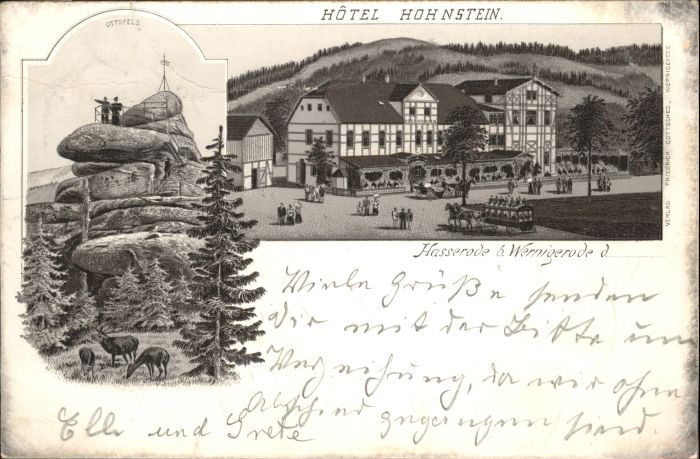 HÔTEL HOHNSTEIN.
OTTOFELS.
VERLAG FRIEDRICH GOTTSCHED, WERNIGERODE
Hasserode b. Wernigerode d.
Viele Grüße senden
Dir mit der Bitte um
Verzeihung, da wir ohne
Abschied gegangen sind.
Elli und Grete